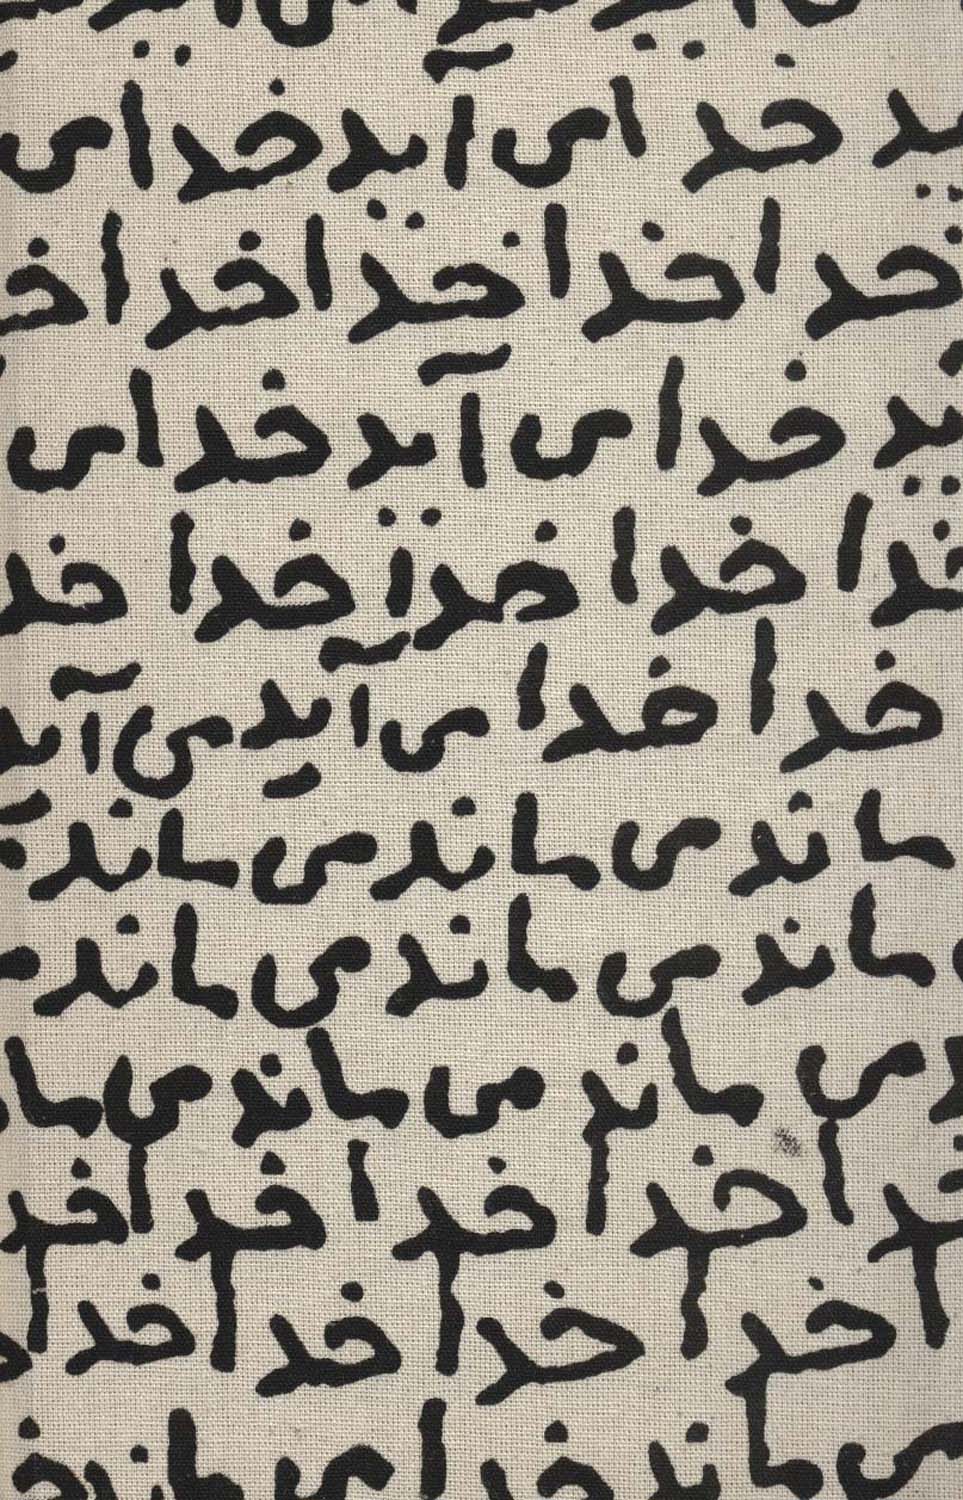 خدای آید خدای
خدا خدا خدا خدا
خدای آید خدای
خدا خدا خدا خدا
خدا خدای آیدی آید
ماندی ماندی ماند
ماندی ماندی ماند
ی ماندی ماندی ما
خدا خدا خدا خدا خد
خدا خدا خدا خدا